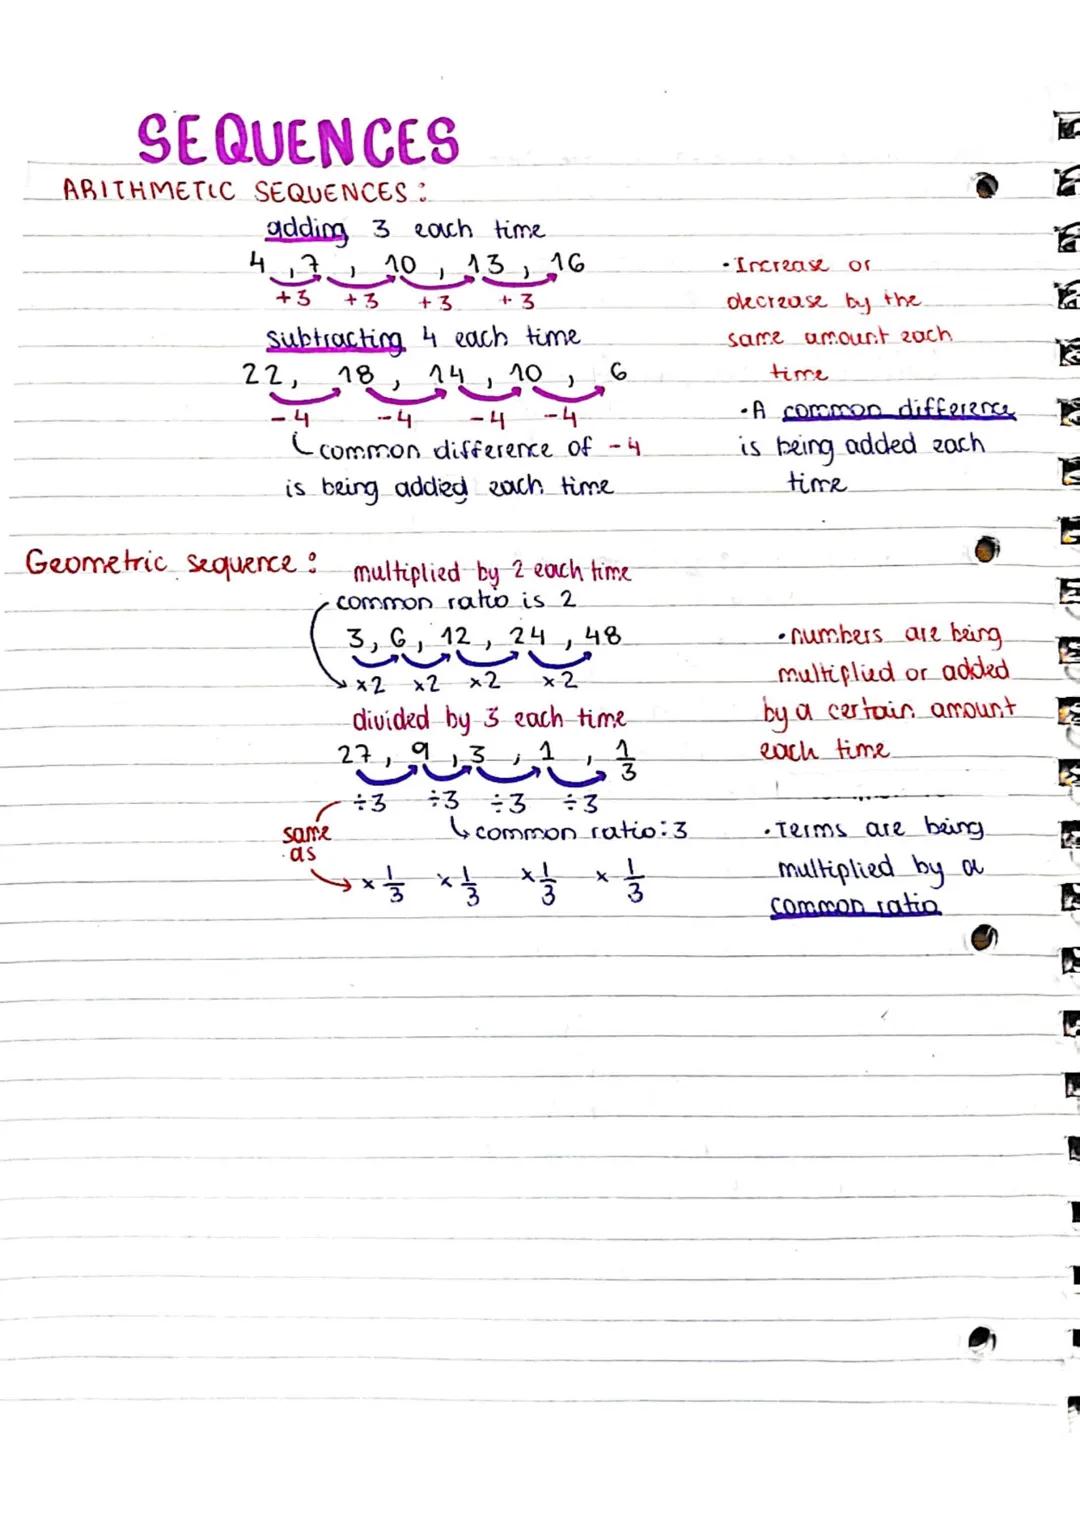 SEQUENCES
ARITHMETIC SEQUENCES:
adding 3 each time
4, 7, 10, 13, 16
+3 +3 +3 +3
subtracting 4 each time
22, 18, 14, 10, 6
-4 -4 -4 -4
common difference of -4
is being added each time
• Increase or
decrease by the
same amount each
time
• A common difference
is being added each
time
Geometric sequence:
multiplied by 2 each time
common ratio is 2
3, 6, 12, 24, 48
×2 ×2 ×2 ×2
divided by 3 each time
27, 9, 3, 1, 1/3
÷3 ÷3 ÷3 ÷3
common ratio: 3
same
as
× 1/3 × 1/3 × 1/3 × 1/3
• numbers are being
multiplied or added
by a certain amount
each time
• Terms are being
multiplied by a
common ratio